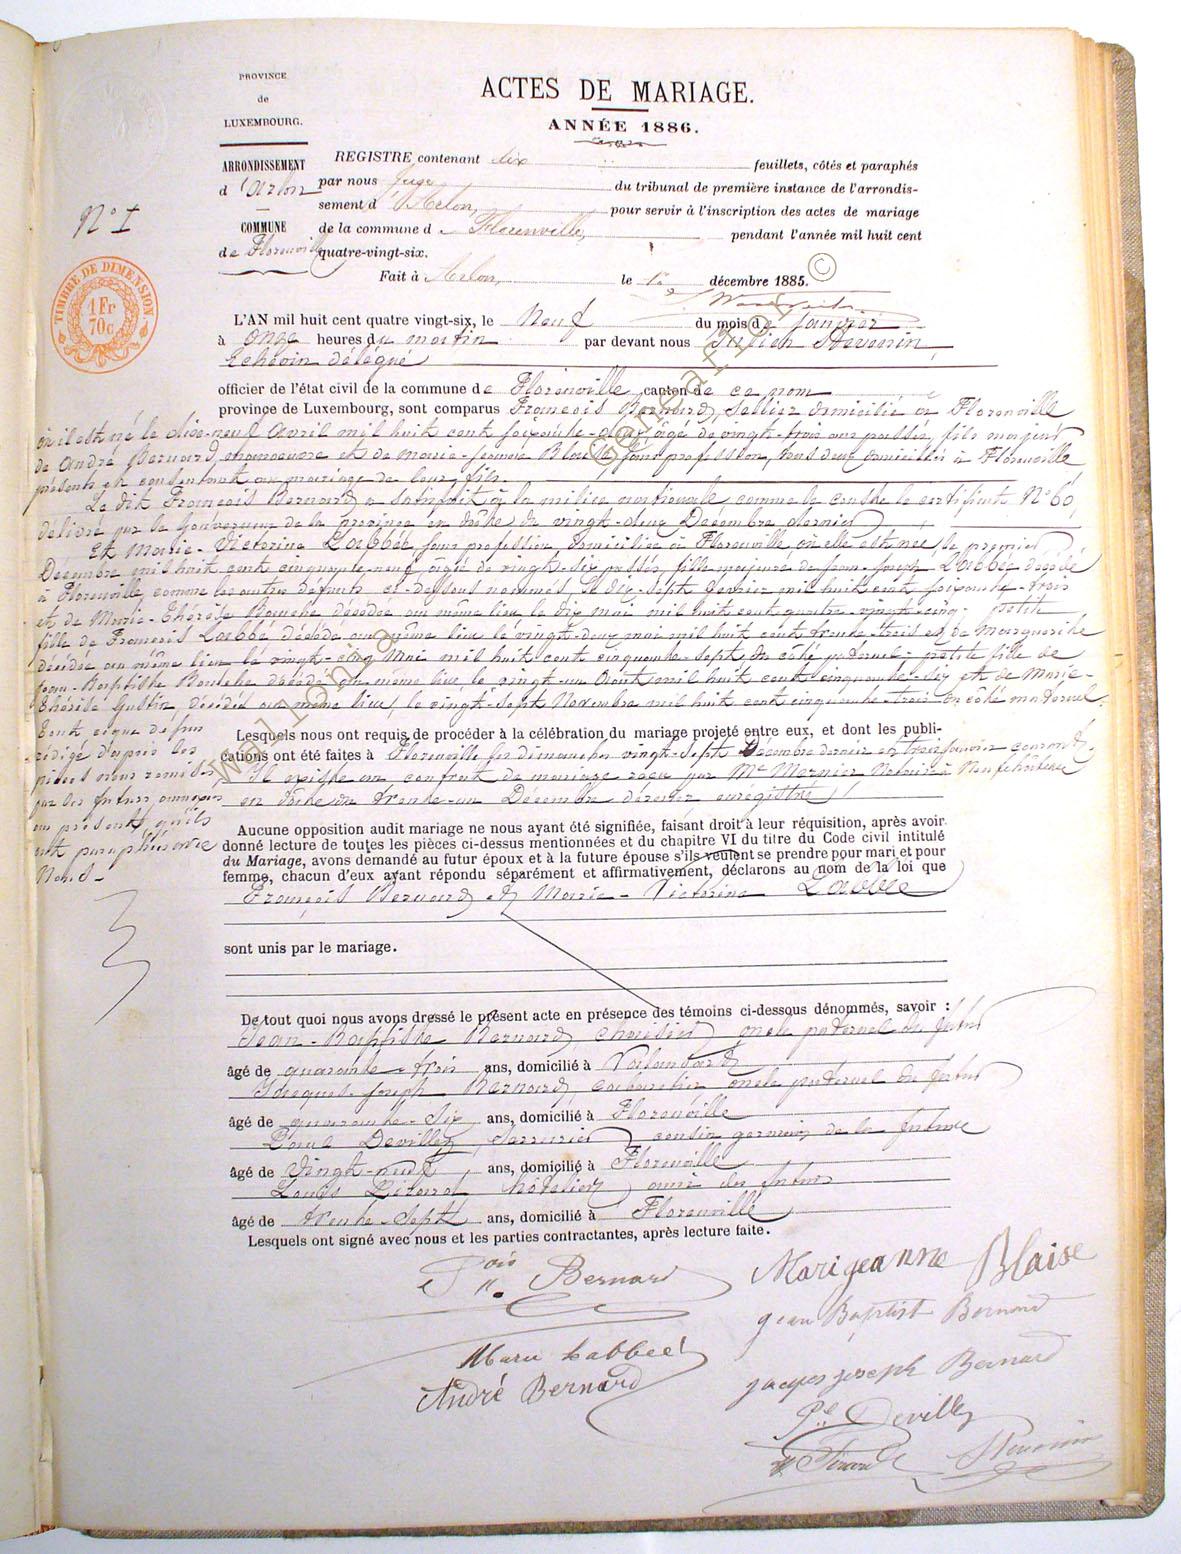 PROVINCE
de
LUXEMBOURG.
ARRONDISSEMENT
d'Arlon
COMMUNE
de Florenville
N° 1
TIMBRE DE DIMENSION
1 Fr
70c
ACTES DE MARIAGE.
ANNÉE 1886.
REGISTRE contenant dix feuillets, côtés et paraphés
par nous Juge du tribunal de première instance de l'arrondis-
sement d'Arlon, pour servir à l'inscription des actes de mariage
de la commune de Florenville, pendant l'année mil huit cent
quatre-vingt-six.
Fait à Arlon, le décembre 1885.
L'AN mil huit cent quatre vingt-six, le Neuf du mois de Janvier
à onze heures du matin par devant nous Stevenin,
Echevin délégué
officier de l'état civil de la commune de Florenville, canton de ce nom
province de Luxembourg, sont comparus François Bernard, sellier domicilié à Florenville
où il est né le dix-neuf Avril mil huit cent soixante-deux âgé de vingt-trois ans passés, fils majeur
de André Bernard, manoeuvre et de Marie-Jeanne Blaise sans profession, tous deux domiciliés à Florenville
présents et consentant au mariage de leur fils.
Le dit François Bernard a satisfait à la milice nationale comme le constate le certificat N° 60,
délivré par le Gouverneur de la province en date du vingt-deux Décembre dernier
Et Marie-Victorine Labbée, sans profession, domiciliée à Florenville où elle est née le premier
Décembre mil huit cent cinquante-neuf, âgée de vingt-six passés, fille majeure de Jean-Joseph Labbée décédé
à Florenville, comme les autres défunts ci-dessous nommés, le dix-sept Janvier mil huit cent soixante-trois
et de Marie-Thérèse décédée au même lieu le dix mai mil huit cent quatre-vingt-cinq - petite
fille de François Labbé décédé au même lieu le vingt-deux mai mil huit cent trente-trois et de Marguerite
décédée au même lieu le vingt-cinq Mai mil huit cent cinquante-sept du côté paternel - petite fille de
Jean-Baptiste décédé au même lieu le vingt-un Août mil huit cent cinquante-six et de Marie-
Thérèse Gustin, décédée au même lieu, le vingt-sept Novembre mil huit cent cinquante-trois du côté maternel
tout ce que dessus
rédigé d'après les
pièces nous remises
par les futurs annexées
au présent qu'ils
ont paraphées avec
Nous -
Lesquels nous ont requis de procéder à la célébration du mariage projeté entre eux, et dont les publi-
cations ont été faites à Florenville les dimanches vingt-sept Décembre dernier et trois Janvier courant
Il existe un contrat de mariage reçu par Me Mernier Notaire à Neufchâteau
en date du trente-un Décembre dernier enregistré
Aucune opposition audit mariage ne nous ayant été signifiée, faisant droit à leur réquisition, après avoir
donné lecture de toutes les pièces ci-dessus mentionnées et du chapitre VI du titre du Code civil intitulé
du Mariage, avons demandé au futur époux et à la future épouse s'ils veulent se prendre pour mari et pour
femme, chacun d'eux ayant répondu séparément et affirmativement, déclarons au nom de la loi que
François Bernard et Marie-Victorine Labbée
sont unis par le mariage.
De tout quoi nous avons dressé le présent acte en présence des témoins ci-dessous dénommés, savoir :
Jean-Baptiste Bernard, oncle paternel du futur
âgé de quarante-trois ans, domicilié à
Jacques-Joseph Bernard, cabaretier oncle paternel du futur
âgé de quarante-six ans, domicilié à Florenville
Paul Devillez, serrurier, cousin germain de la future
âgé de vingt-neuf ans, domicilié à Florenville
Louis hôtelier, ami des futurs
âgé de trente-sept ans, domicilié à Florenville
Lesquels ont signé avec nous et les parties contractantes, après lecture faite.
Fçois Bernard
Marigeanne Blaise
gean Baptist Bernard
Marie Labbeé
André Bernard
jacques joseph Bernard
Pl Devillez
Stevenin